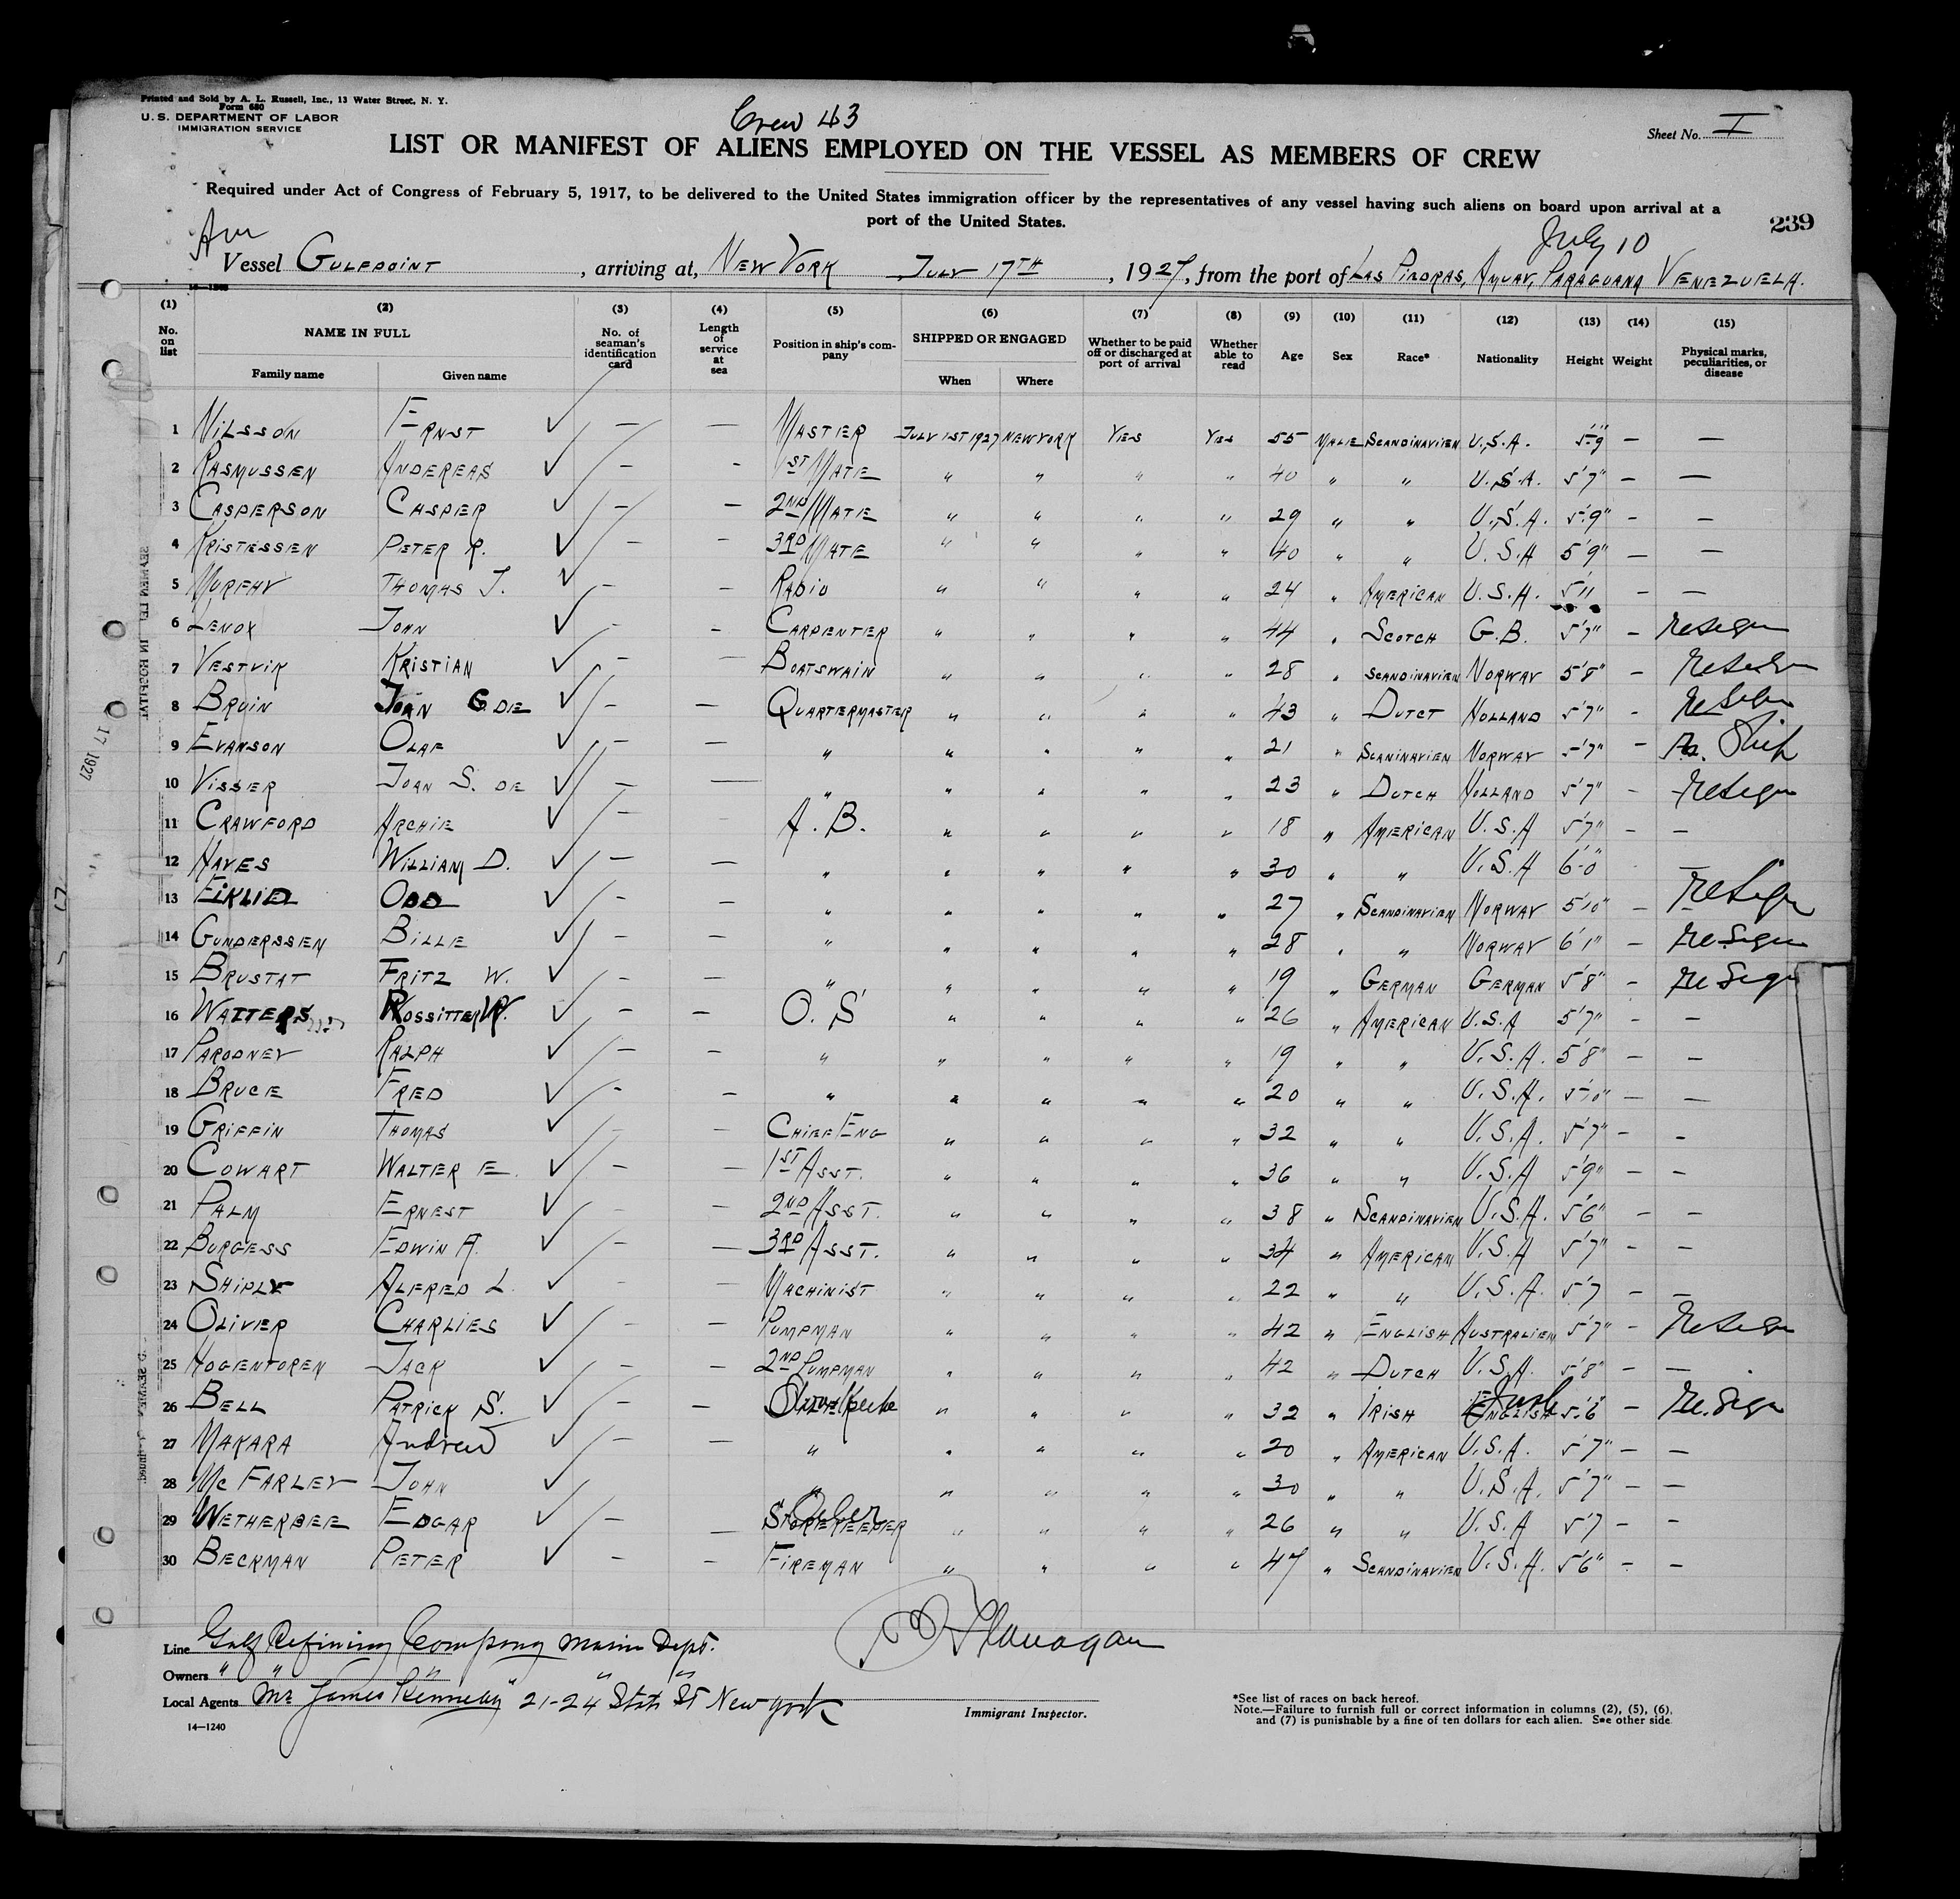 Printed and Sold by A. L. Russell, Inc., 13 Water Street, N. Y.
Form 680
U. S. DEPARTMENT OF LABOR
IMMIGRATION SERVICE
Crew 43
Sheet No. I
LIST OR MANIFEST OF ALIENS EMPLOYED ON THE VESSEL AS MEMBERS OF CREW
Required under Act of Congress of February 5, 1917, to be delivered to the United States immigration officer by the representatives of any vessel having such aliens on board upon arrival at a
port of the United States.
239
Am
July 10
Vessel GULFPOINT, arriving at, NEW YORK JULY 17TH, 1927, from the port of LAS PIADRAS, AMUAY, PARAGUANA VENEZUELA.
(1) (2) (3) (4) (5) (6) (7) (8) (9) (10) (11) (12) (13) (14) (15)
No. on list NAME IN FULL No. of seaman's identification card Length of service at sea Position in ship's company SHIPPED OR ENGAGED Whether to be paid off or discharged at port of arrival Whether able to read Age Sex Race* Nationality Height Weight Physical marks, peculiarities, or disease
Family name Given name When Where
1 NILSSON ERNST ✓ — — MASTER JULY 1ST 1927 NEW YORK YES YES 55 MALE SCANDINAVIEN U.S.A. 5'9" — —
2 RASMUSSEN ANDEREAS ✓ — — 1ST MATE " " " " 40 " " U.S.A. 5'7" — —
3 CASPERSON CASPER ✓ — — 2ND MATE " " " " 29 " " U.S.A. 5'9" — —
4 KRISTESSEN PETER R. ✓ — — 3RD MATE " " " " 40 " " U.S.A 5'9" — —
5 MURPHY THOMAS J. ✓ — — RADIO " " " " 24 " AMERICAN U.S.A. 5'11 — —
6 LENOX JOHN ✓ — — CARPENTER " " " " 44 " SCOTCH G.B. 5'7" — Resign
7 VESTVIK KRISTIAN ✓ — — BOATSWAIN " " " " 28 " SCANDINAVIEN NORWAY 5'8" — Resign
8 BRUIN JOAN G. DE ✓ — — QUARTERMASTER " " " " 43 " DUTCT HOLLAND 5'7" — Resign
9 EVANSON OLAF ✓ — — " " " " " 21 " SCANINAVIEN NORWAY 5'7" — Ship
10 VISSER JOAN S. DE ✓ — — " " " " " 23 " DUTCH HOLLAND 5'7" — Resign
11 CRAWFORD ARCHIE ✓ — — A.B. " " " " 18 " AMERICAN U.S.A 5'7" — —
12 HAYES WILLIAM D. ✓ — — " " " " " 30 " " U.S.A 6'-0" —
13 EIKLID ODD ✓ — — " " " " " 27 " SCANDINAVIEN NORWAY 5'10" — Resign
14 GUNDERSSEN BILLE ✓ — — " " " " " 28 " " NORWAY 6'1" — Resign
15 BRUSTAT FRITZ W. ✓ — — " " " " " 19 " GERMAN GERMAN 5'8" — Resign
16 WATTERS ROSSITTER W. ✓ — — O.S " " " " 26 " AMERICAN U.S.A 5'7" — —
17 PARODNEY RALPH ✓ — — " " " " " 19 " " U.S.A. 5'8" — —
18 BRUCE FRED ✓ — — " " " " " 20 " " U.S.A. 5'10" — —
19 GRIFFIN THOMAS ✓ — — CHIEF ENG " " " " 32 " " U.S.A. 5'7" — —
20 COWART WALTER E. ✓ — — 1ST ASST. " " " " 36 " " U.S.A 5'9" — —
21 PALM ERNEST ✓ — — 2ND ASST. " " " " 38 " SCANDINAVIEN U.S.A. 5'6" — —
22 BURGESS EDWIN A. ✓ — — 3RD ASST. " " " " 34 " AMERICAN U.S.A 5'7" — —
23 SHIPLY ALFRED L. ✓ — — MACHINIST " " " " 22 " " U.S.A. 5'7 — —
24 OLIVER CHARLIES ✓ — — PUMPMAN " " " " 42 " ENGLISH AUSTRALIEN 5'7" — Resign
25 HOGENTOREN JACK ✓ — — 2ND PUMPMAN " " " " 42 " DUTCH U.S.A. 5'8" — —
26 BELL PATRICK S. ✓ — — " " " " 32 " IRISH ENGLISH Irish 5'6" — Resign
27 MAKARA Andrew ✓ — — " " " " " 20 " AMERICAN U.S.A. 5'7" — —
28 MC FARLEY JOHN ✓ " " " " " 30 " " U.S.A. 5'7" — —
29 WETHERBEE EDGAR ✓ — — STOREKEEPER Oiler " " " " 26 " " U.S.A 5'7 — —
30 BECKMAN PETER ✓ — — FIREMAN " " " " 47 " SCANDINAVIEN U.S.A. 5'6" — —
Line Gulf Refining Company Marine Dept.
Owners " " " " "
Local Agents Mr James Kennedy 21-24 State St New York
Flanagan
Immigrant Inspector.
14—1240
*See list of races on back hereof.
Note.—Failure to furnish full or correct information in columns (2), (5), (6),
and (7) is punishable by a fine of ten dollars for each alien. See other side.
17 1927